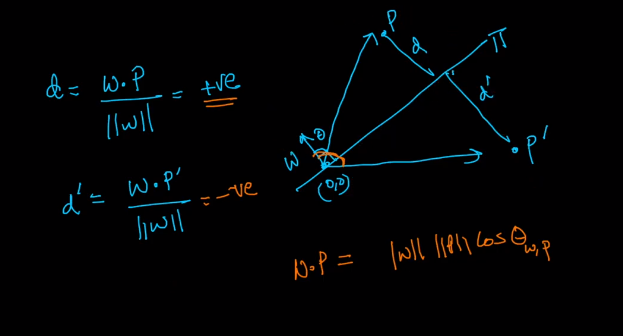 d = w·P / ||w|| = +ve
d' = w·P' / ||w|| = -ve
P
d
π
d'
P'
θ
w
(0,0)
w·P = ||w|| ||P|| cos θ w,P